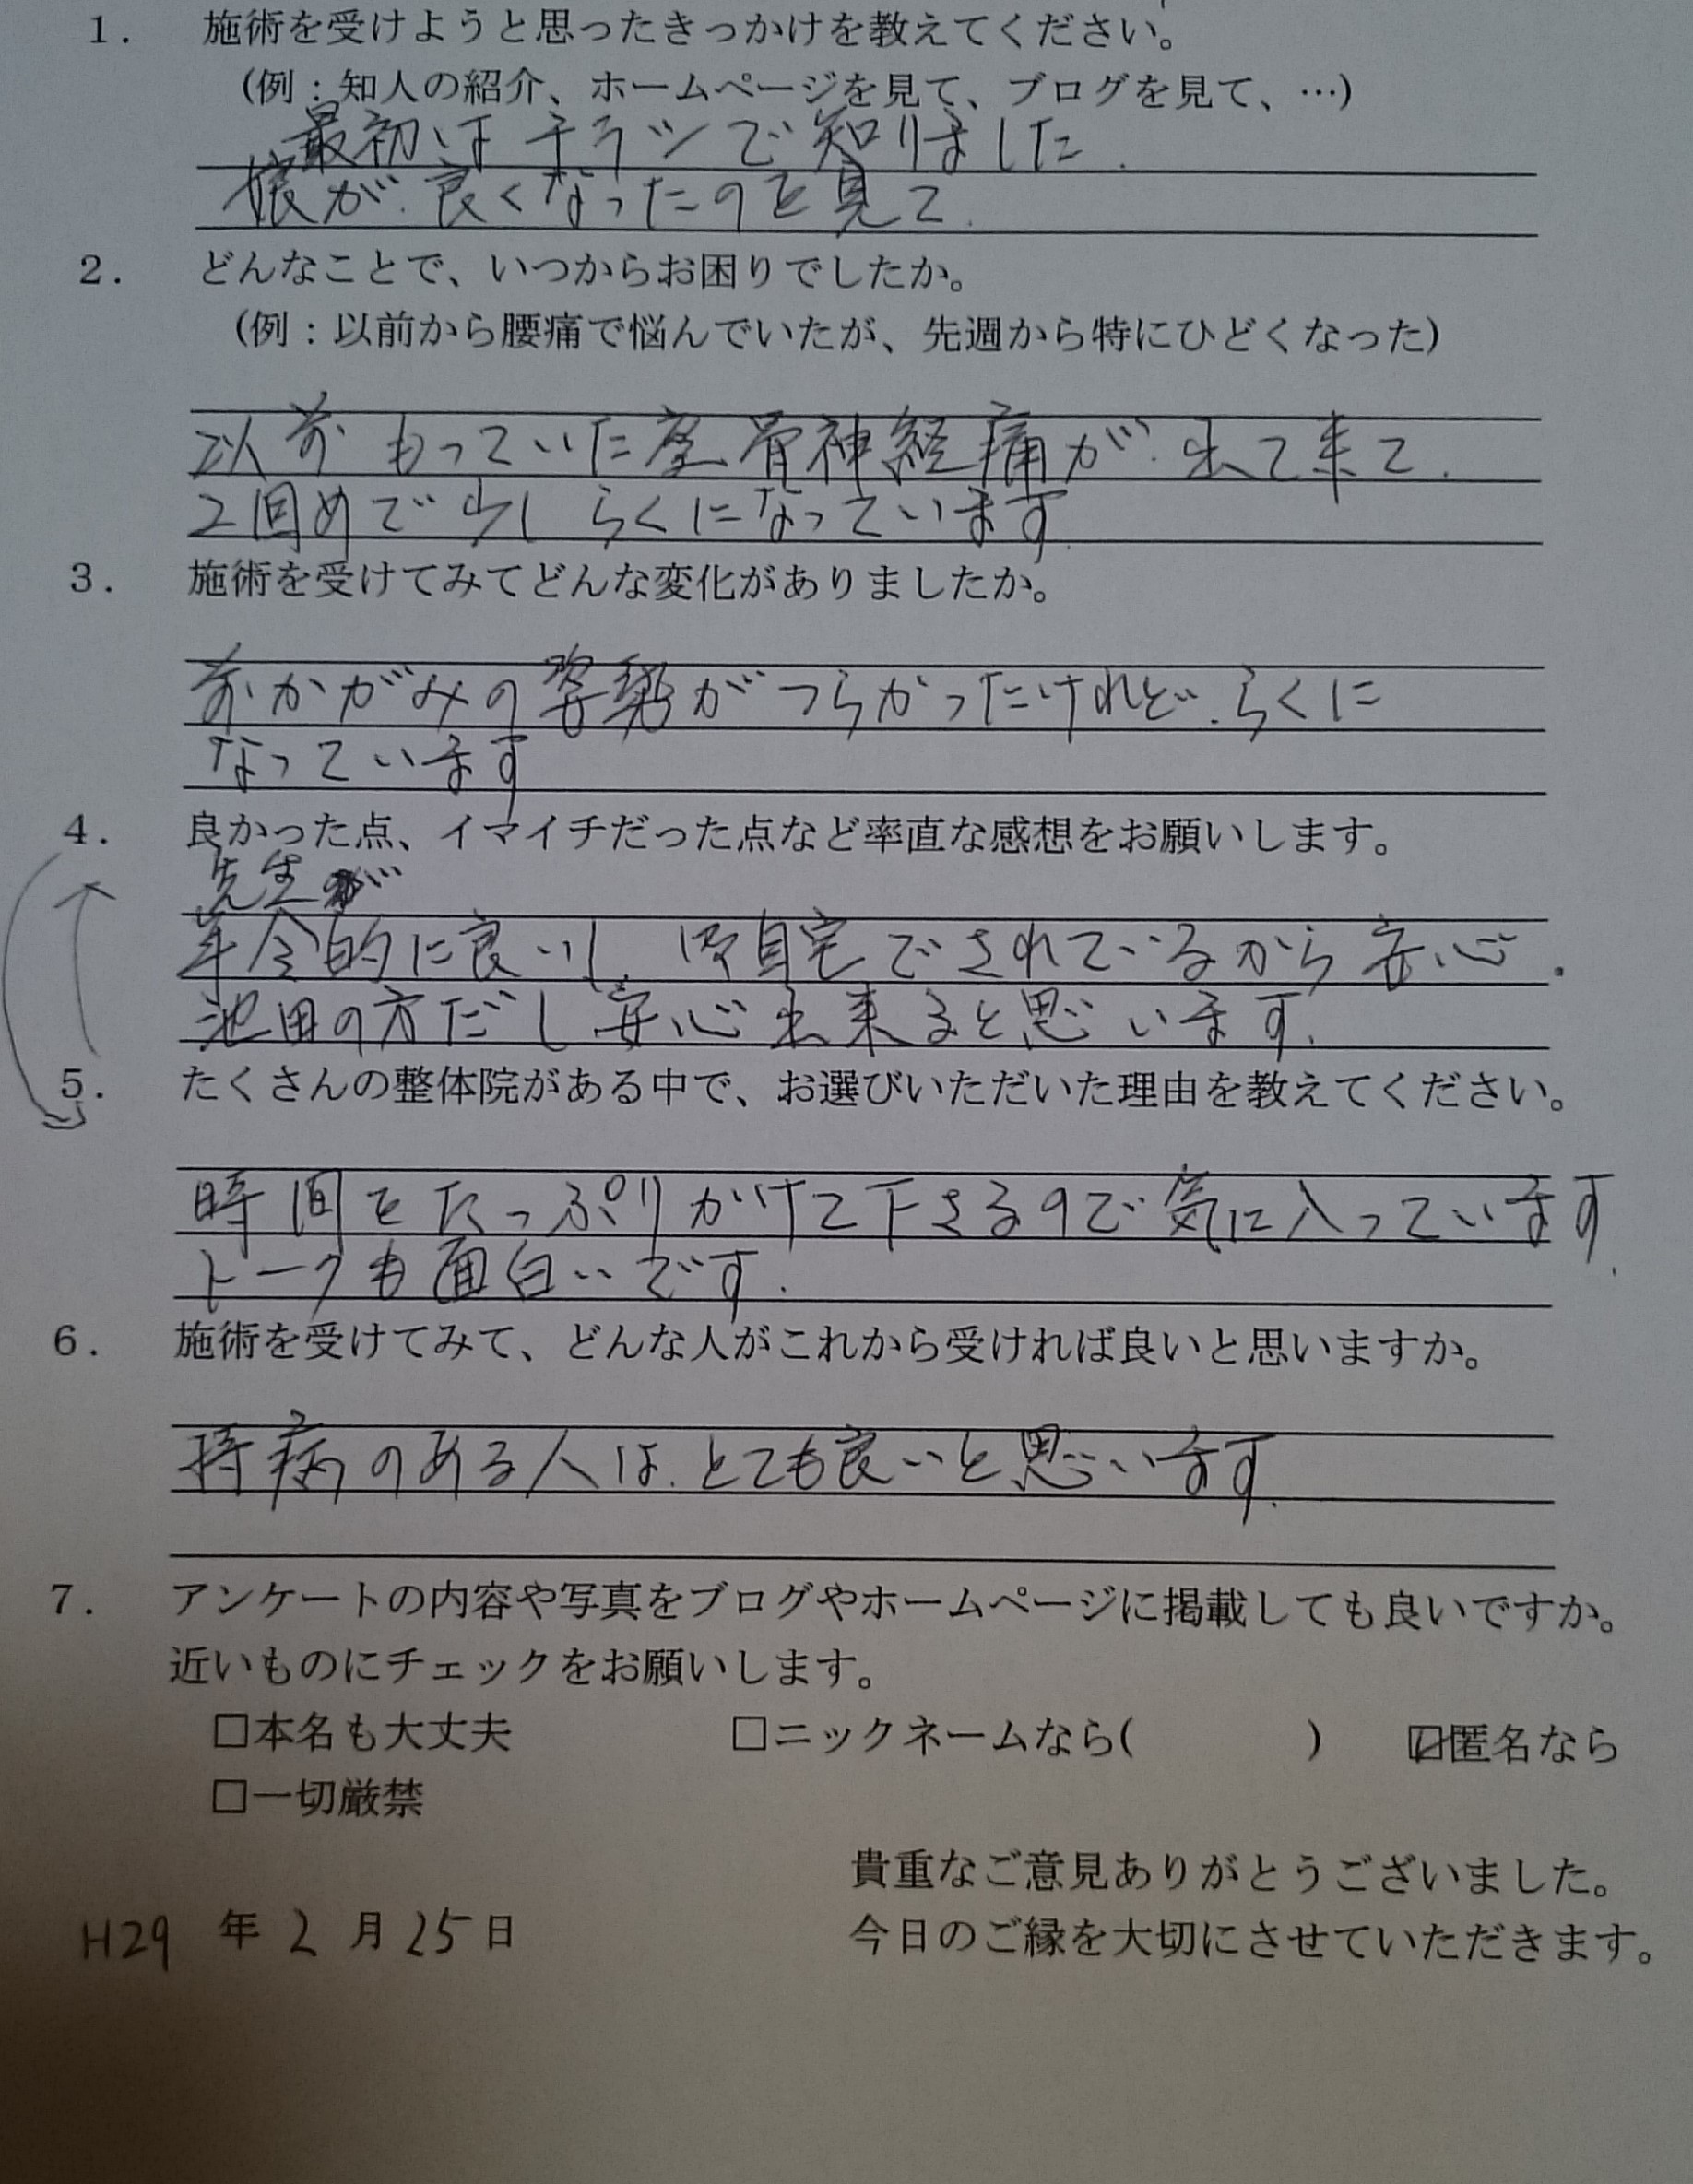 1. 施術を受けようと思ったきっかけを教えてください。
(例：知人の紹介、ホームページを見て、ブログを見て、…)
最初はチラシで知りました.
娘が.良くなったのを見て.
2. どんなことで、いつからお困りでしたか。
(例：以前から腰痛で悩んでいたが、先週から特にひどくなった)
以前もっていた座骨神経痛が.出て来て.
2回めで少しらくになっています.
3. 施術を受けてみてどんな変化がありましたか。
前かがみの姿勢がつらかったけれど.らくに
なっています
4. 良かった点、イマイチだった点など率直な感想をお願いします。
先生が
年令的に良いし、自宅でされているから安心.
池田の方だし安心出来ると思います.
5. たくさんの整体院がある中で、お選びいただいた理由を教えてください。
時間をたっぷりかけて下さるので気に入っています.
トークも面白いです.
6. 施術を受けてみて、どんな人がこれから受ければ良いと思いますか。
持病のある人は.とても良いと思います.
7. アンケートの内容や写真をブログやホームページに掲載しても良いですか。
近いものにチェックをお願いします。
□本名も大丈夫 □ニックネームなら( ) ☑匿名なら
□一切厳禁
貴重なご意見ありがとうございました。
H29 年 2 月 25 日 今日のご縁を大切にさせていただきます。